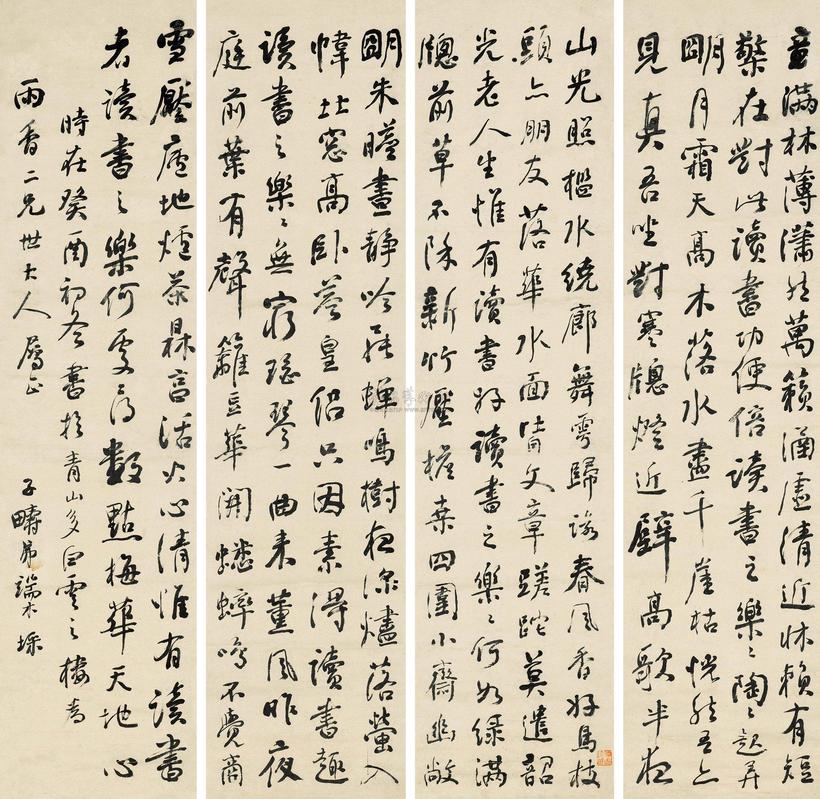 意滿林薄瀟然萬籟涵虛清近牀賴有短
檠在對此讀書功便倍讀書之樂樂陶陶起弄
明月霜天高木落水盡千崖枯恍然吾亦
見真吾坐對寒牕燈近壁高歌半夜
山光照檻水繞廊舞雩歸詠春風香好鳥枝
頭亦朋友落華水面皆文章蹉跎莫遣韶
光老人生惟有讀書好讀書之樂樂何如綠滿
牕前草不除新竹壓檐桑四圍小齋幽敞
明朱曦晝靜吟罷蟬鳴樹夜深燼落螢入
幃北窓高臥羲皇侶只因素得讀書趣
讀書之樂樂無窮瑤琴一曲來薰風昨夜
庭前葉有聲籬豆華開蟋蟀鳴不覺商
雪壓廬地爐茶鼎烹活火心清惟有讀書
者讀書之樂何處尋數點梅華天地心
時在癸酉初冬書於青山多白雲之樓為
雨香二兄世大人屬正
子疇弟端木埰